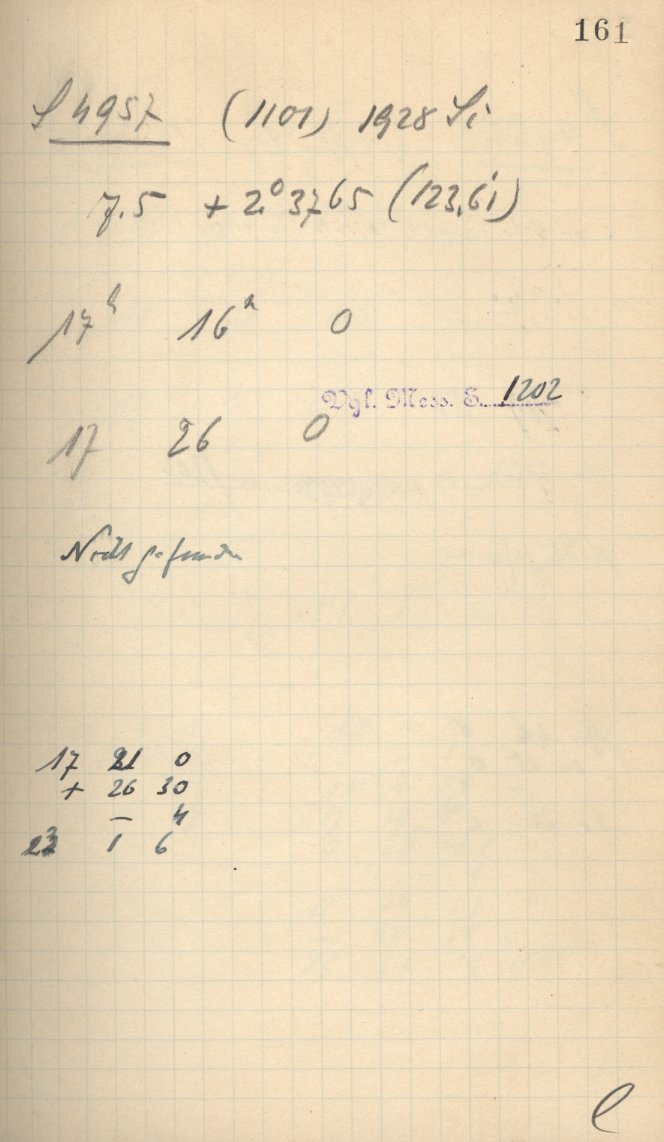 161
S 4957 (1101) 1928 Si
7.5 + 2.° 3765 (123,61)
17ʰ 16ᵐ 0
Vgl. Mess. S. 1202
17 26 0
Nicht gefunden
17 21 0
+ 26 30
— 4
1 6